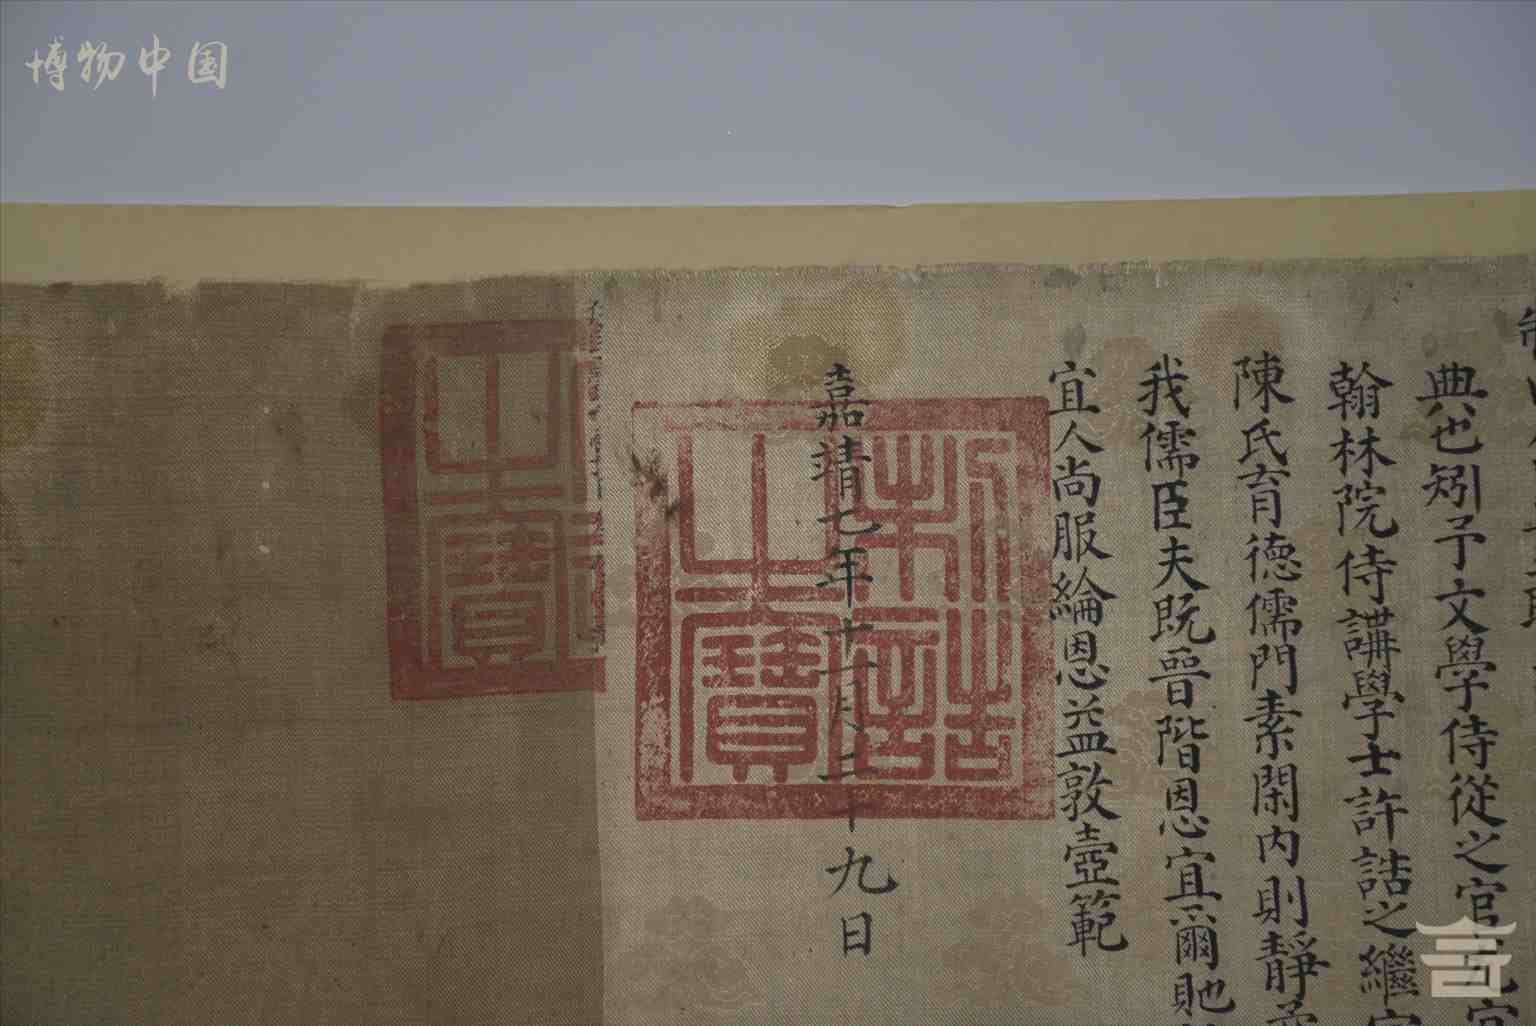 博物中国
典也矧予文學侍從之官
翰林院侍講學士許誥之繼
陳氏育德儒門素閑內則靜
我儒臣夫既晉階恩宜爾貤
宜人尚服綸恩益敦壼範
嘉靖七年十一月二十九日
制誥之寶
之寶